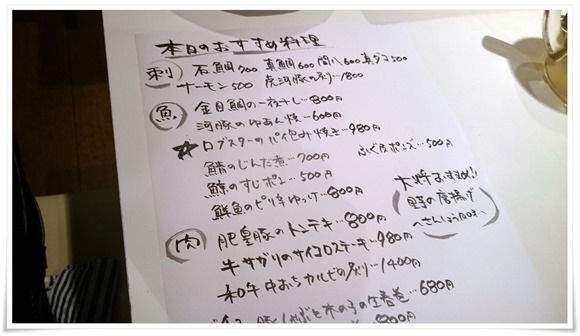 本日のおすすめ料理
刺 石鯛700 真鯛600 間八600 真ダコ500
サーモン500 虎河豚の炙り1800
魚 金目鯛の一夜干し…800円
河豚のゆあん焼…600円
☆ロブスターのパイ包み焼き…980円
鯖のじんだ煮…700円
ふぐ皮ポン酢…500円
鯨のすじポン…500円
鮮魚のピリ辛ゆっけ…800円
大将おすすめ!!
の唐揚げ
肉 肥皇豚のトンテキ…800円
牛サガリのサイコロステーキ…980円
和牛中おちカルビの炙り…1400円
豚しゃぶと木の子の生春巻…680円
800円